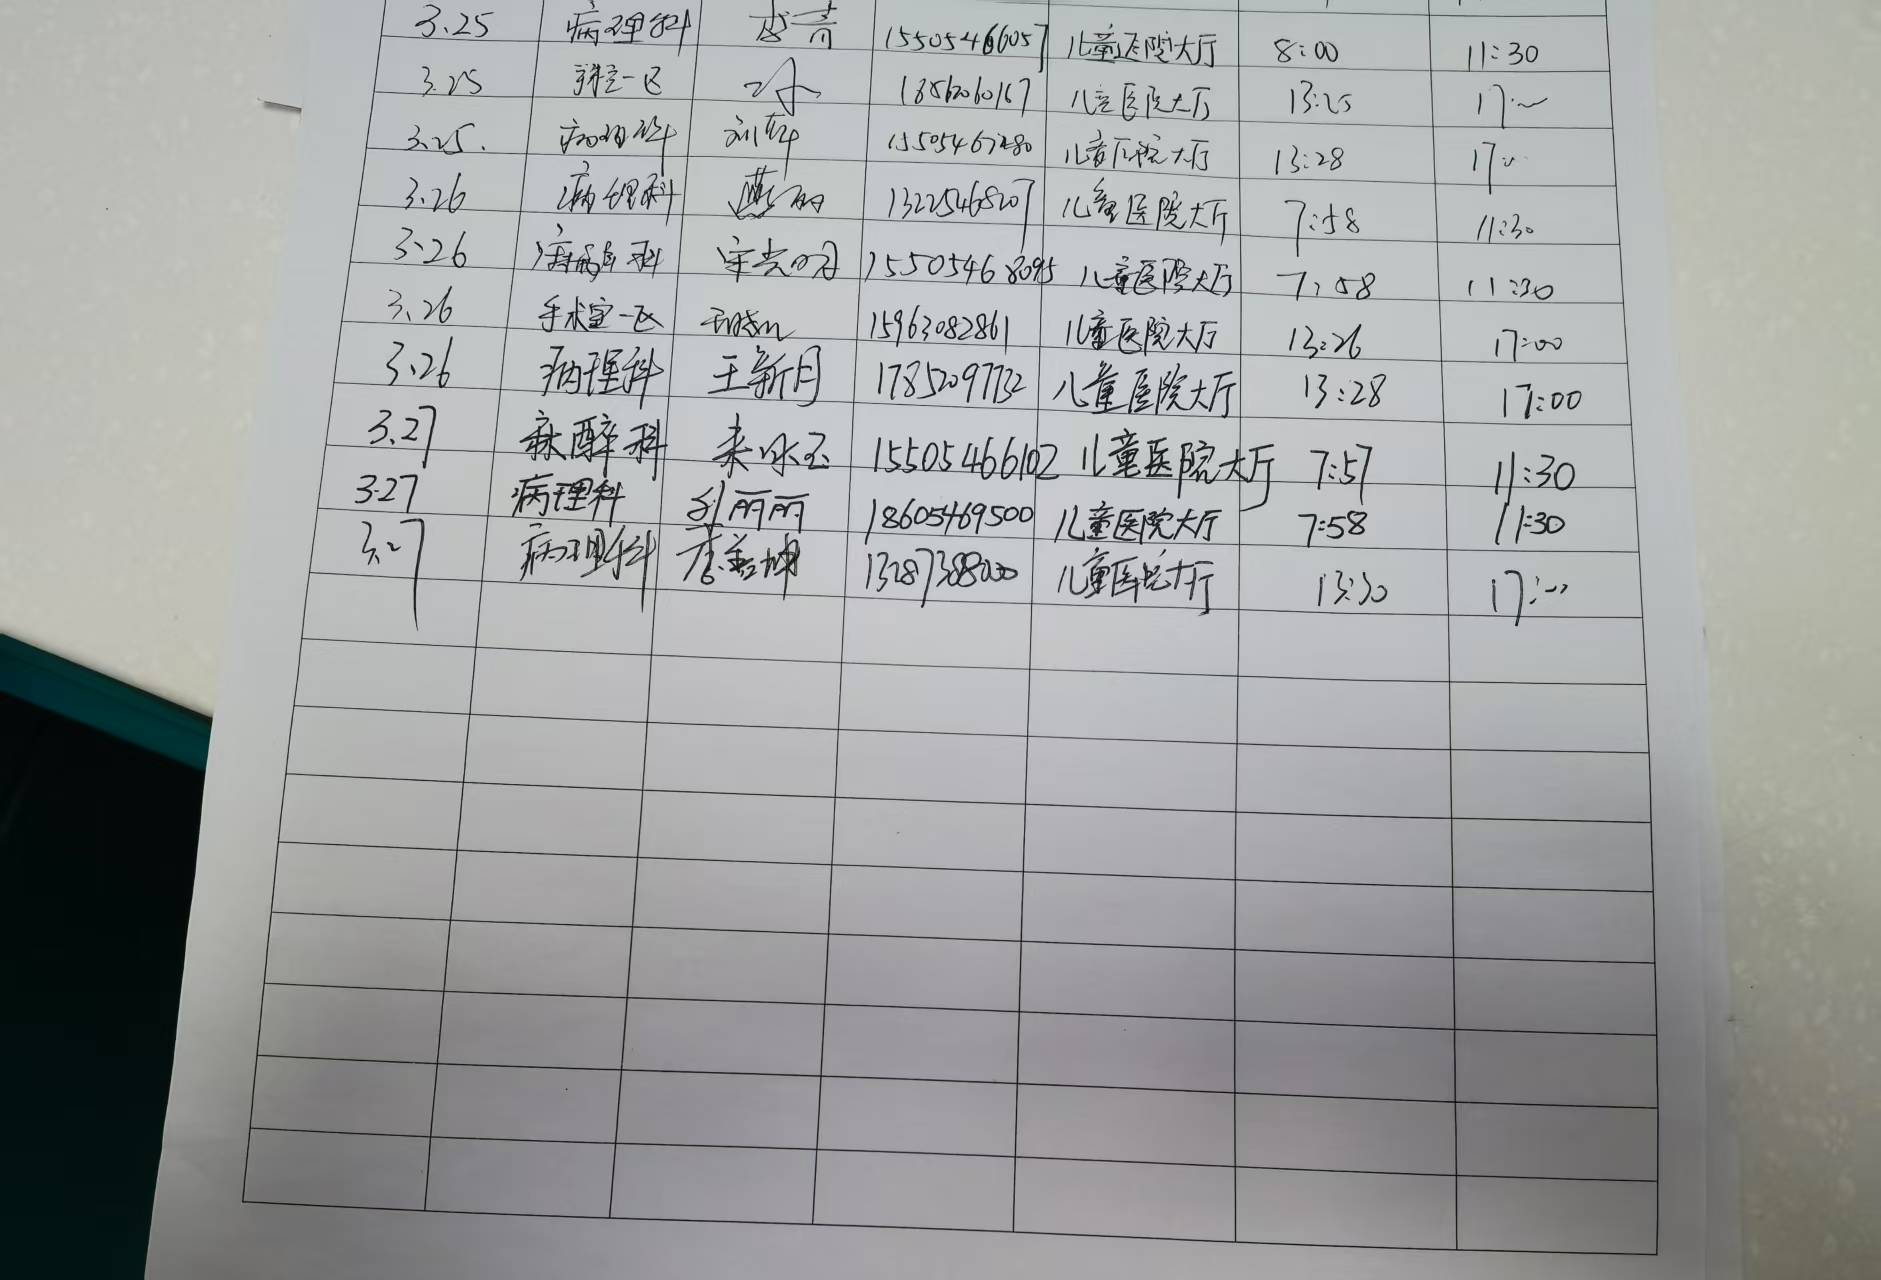 3.25 病理科 15505466057 儿童医院大厅 8:00 11:30
3.25 一区 18562060167 儿童医院大厅 13:25 17:00
3.25. 病理科 15505467280 儿童医院大厅 13:28 17:00
3.26 病理科 燕丽 13225468207 儿童医院大厅 7:58 11:30
3.26 科 15505468095 儿童医院大厅 7:58 11:30
3.26 手术室一区 15963082861 儿童医院大厅 13:26 17:00
3.26 病理科 王新月 17852097732 儿童医院大厅 13:28 17:00
3.27 麻醉科 来冰玉 15505466102 儿童医院大厅 7:57 11:30
3.27 病理科 刘丽丽 18605469500 儿童医院大厅 7:58 11:30
3.27 病理科 儿童医院大厅 13:30 17:00